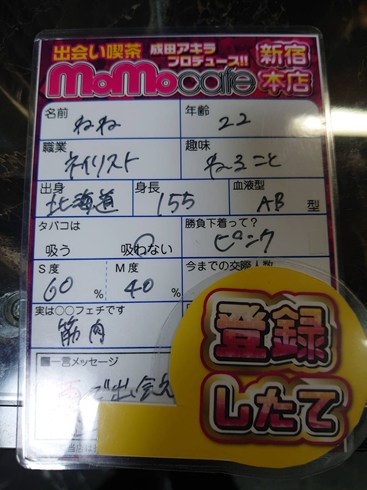 出会い喫茶 成田アキラ プロデュース!! 新宿本店
MoMocafe
名前 ねね 年齢 22
職業 ネイリスト 趣味 ねること
出身 北海道 身長 155 血液型 AB型
タバコは 吸う 吸わない 勝負下着って? ピンク
S度 60% M度 40% 今までの交際人数
実は○○フェチです 筋肉
■一言メッセージ
で出会え
登録
したて